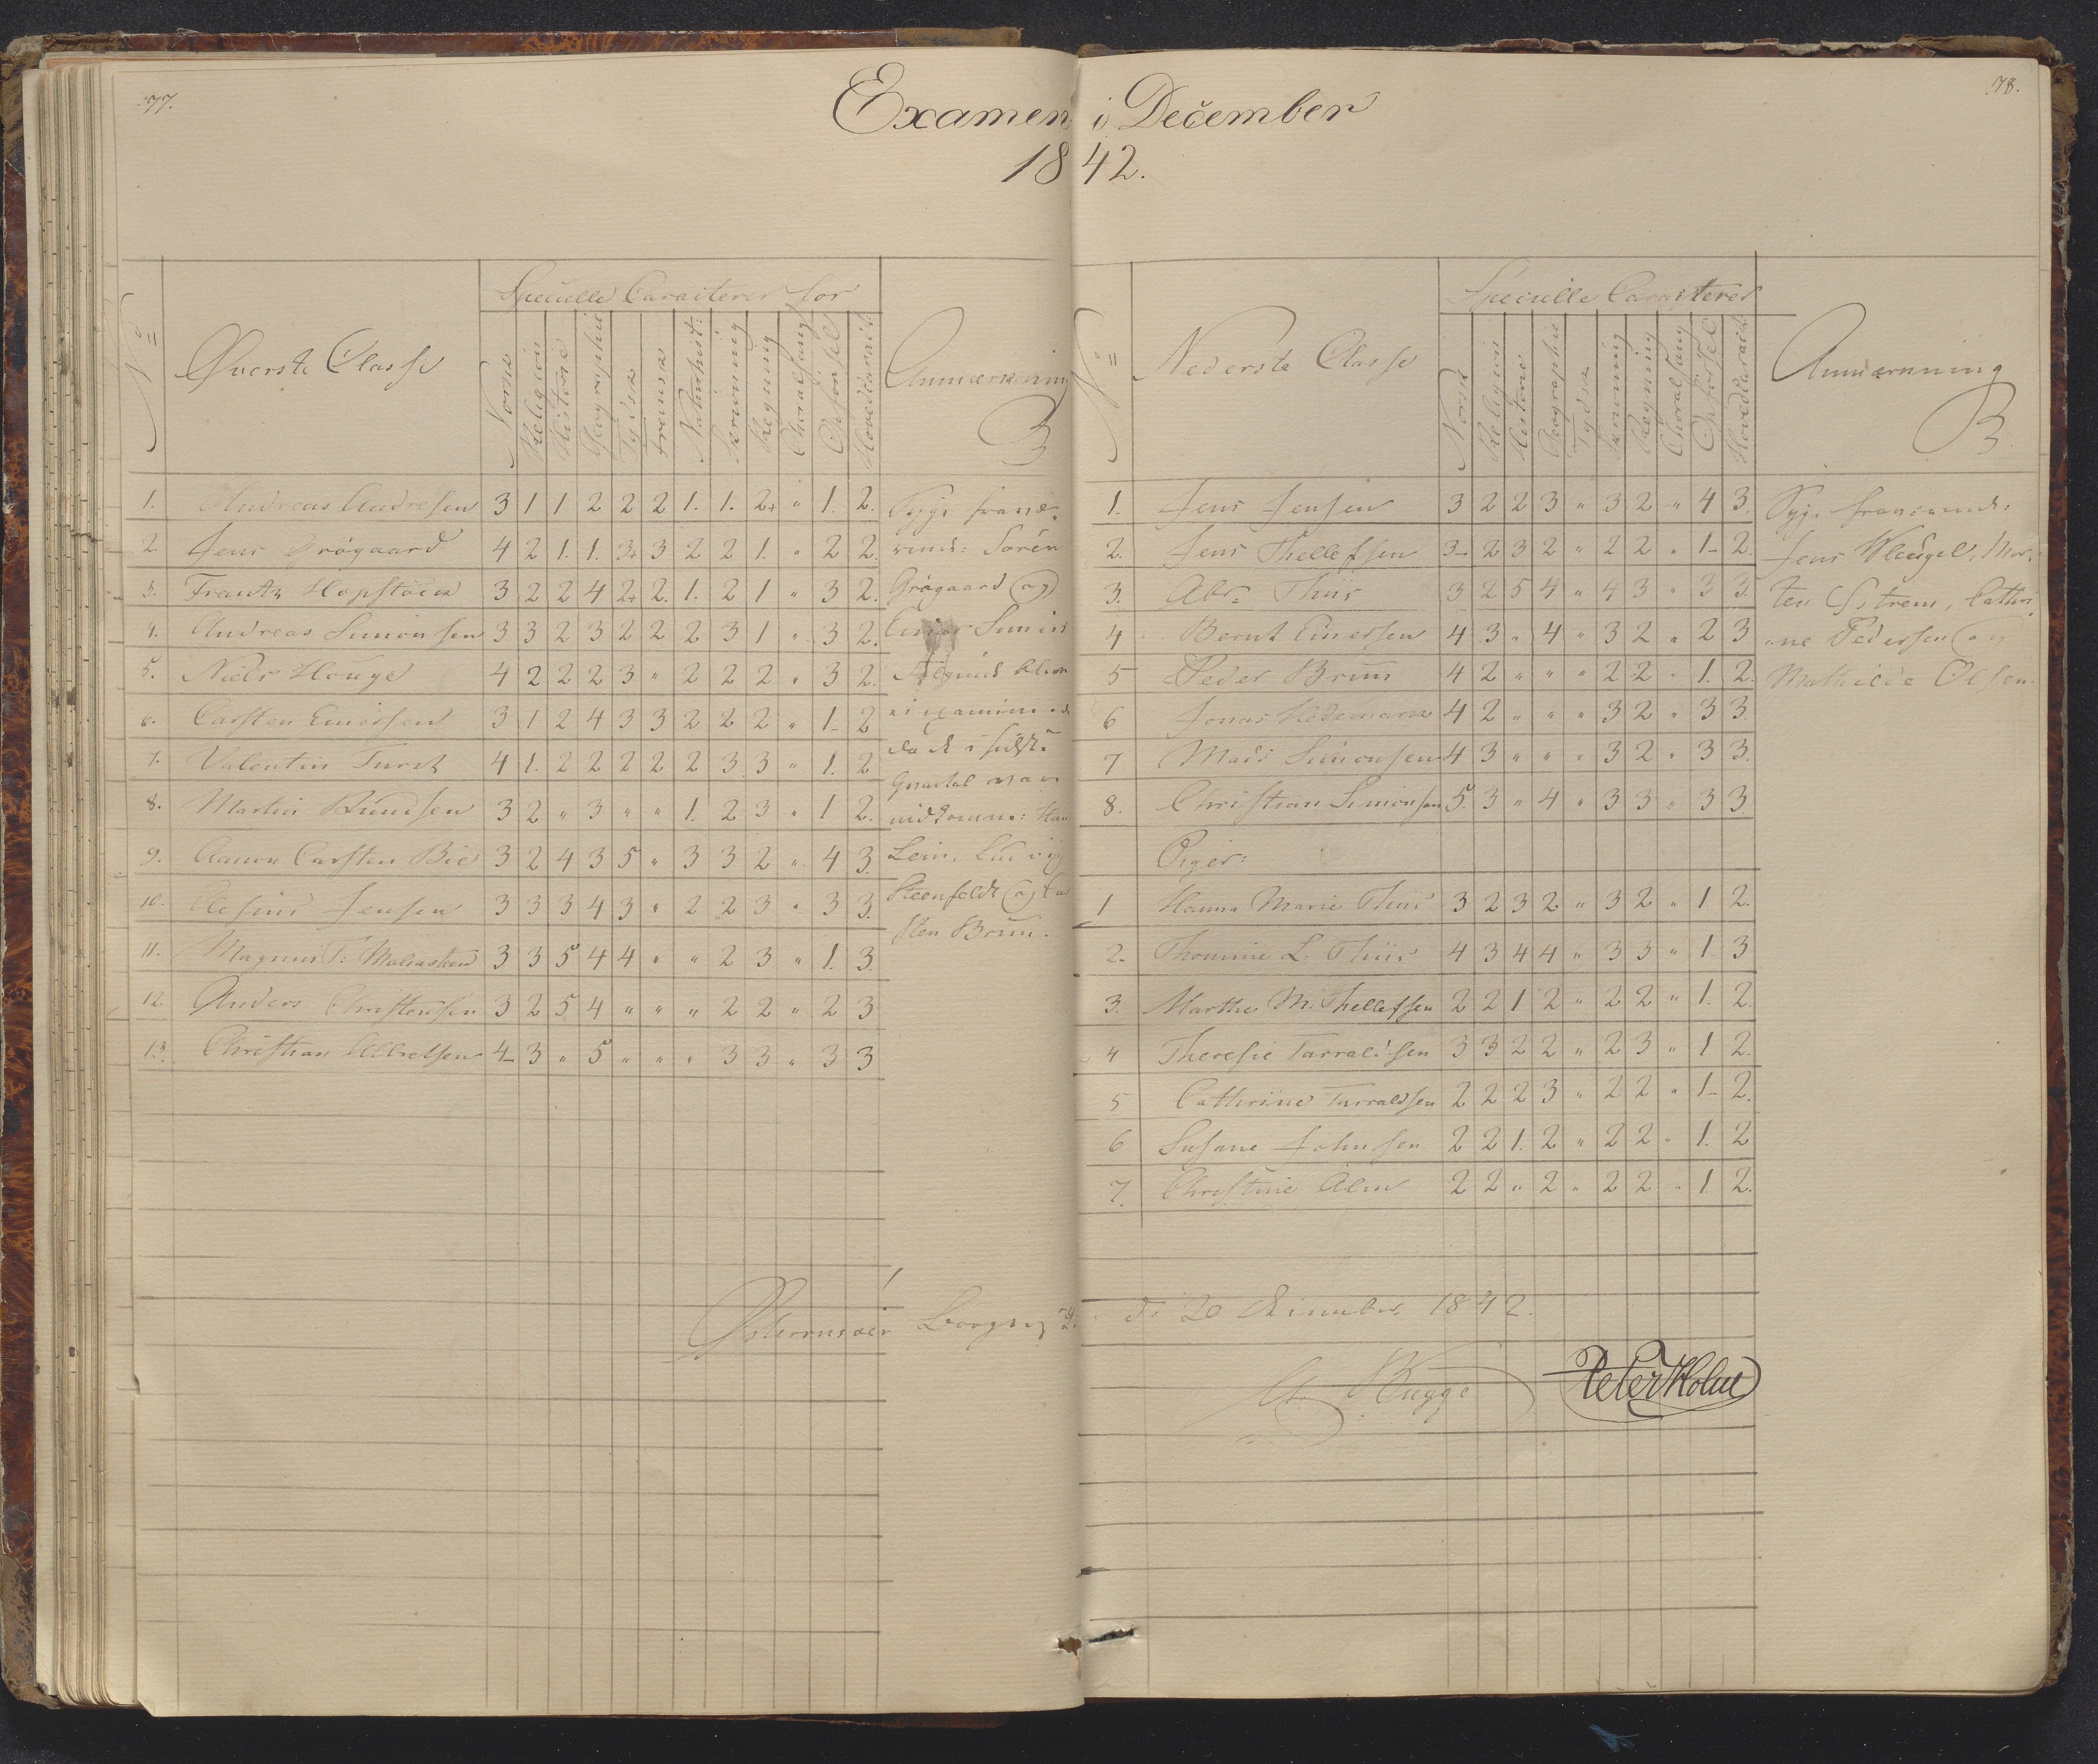 77.
78.
Examen i December
1842.
No
Øverste Classe
Specielle Caracterer for
Norsk
Religion
Historie
Geographie
Tydsk
Fransk
Naturhist:
Skrivning
Regning
Choralsang
Opførsel
Hovedcarakt:
Anmærkning
1. Andreas Andresen 3 1 1 2 2 2 1. 1. 2+ " 1. 2.
2 Jens Grøgaard 4 2 1. 1. 3+ 3 2 2 1. " 2 2.
3. Frantz Hopstock 3 2 2 4 2+ 2. 1. 2 1 " 3 2.
4. Andreas Simonsen 3 3 2 3 2 2 2 3 1 " 3 2.
5. Niels Houge 4 2 2 2 3 " 2 2 2 " 3 2.
6. Carsten Einersen 3 1 2 4 3 3 2 2 2 " 1- 2
7. Valentin Furst 4 1. 2 2 2 2 2 3 3 " 1. 2
8. Martin Knudsen 3 2 " 3 " " 1. 2 3 " 1 2.
9. Aanon Carsten Bie 3 2 4 3 5 " 3 3 2 " 4 3.
10. Jensen 3 3 3 4 3 " 2 2 3 " 3 3.
11. Magnus T: 3 3 5 4 4 " " 2 3 " 1. 3.
12. Anders Christensen 3 2 5 4 " " " 2 2 " 2 3
13. Christian Albretsen 4- 3 " 5 " " " 3 3 " 3 3
Syge fravæ-
rende: Søren
Grøgaard og
Einar Simons
ei examineret
da de i sidste
Quartal vare
indkomne: Han
Lein, Ludvig
Steenfeldt og Car
sten Bruun.
No
Nederste Classe
Specielle Caracterer
Norsk
Religion
Historie
Geographie
Tydsk
Skrivning
Regning
Choralsang
Opførsel
Hovedcarakt:
Anmærkning
1. Jens Jensen 3 2 2 3 " 3 2 " 4 3.
2. Jens Thellefsen 3- 2 3 2 " 2 2 " 1- 2.
3. Abr: Thiis 3 2 5 4 " 4 3 " 3 3.
4 Bernt Einersen 4 3 " 4 " 3 2 " 2 3
5 Peder Bruun 4 2 " " " 2 2 " 1. 2.
6 Jonas Hedemark 4 2 " " " 3 2 " 3 3.
7 Mads Simonsen 4 3 " " " 3 2 " 3 3.
8. Christian Simonsen 5. 3 " 4 " 3 3 " 3 3.
Piger:
1 Hanna Marie Thiis 3 2 3 2 " 3 2 " 1 2.
2. Thomine L. Thiis 4 3 4 4 " 3 3 " 1- 3
3. Marthe M. Thellefsen 2 2 1 2 " 2 2 " 1. 2.
4 Theresie Tarraldsen 3 3 2 2 " 2 3 " 1. 2.
5 Cathrine Tarraldsen 2 2 2 3 " 2 2 " 1- 2.
6 Susane Johnsen 2 2 1. 2 " 2 2 " 1. 2
7. Christine Alm 2 2 " 2 " 2 2 " 1. 2.
Syge fraværende:
Jens Kleugel, Mor-
ten Estrem, Cathri-
ne Pedersen og
Mathilde Olsen.
Østerriisøer Borger d: 20 December 1842.
Bugge
Peter Holm